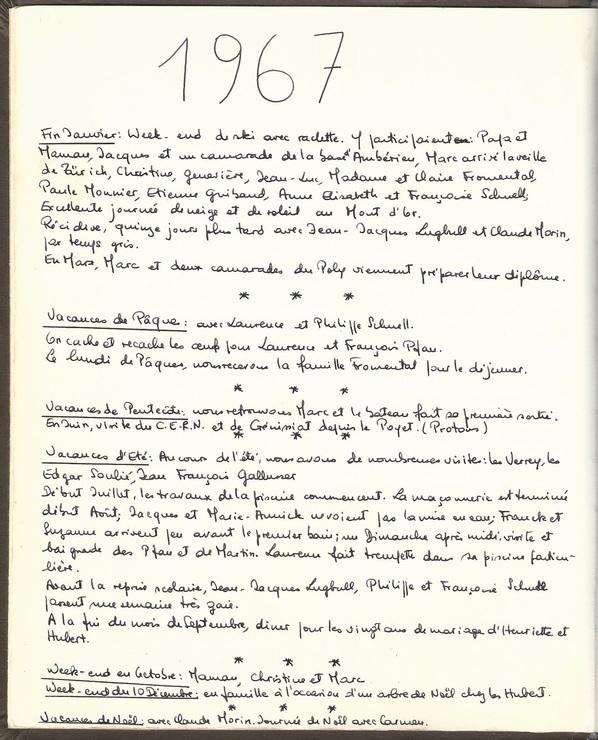 1967
Fin Janvier: Week-end de ski avec raclette. Y participaient: Papa et
Maman, Jacques et un camarade de la base d'Ambérieu, Marc arrivé la veille
de Zürich, Christine, Geneviève, Jean-Luc, Madame et Claire Fromental,
Paule Monnier, Etienne Guibaud, Anne Elisabeth et Françoise Schnell;
Excellente journée de neige et de soleil au Mont d'Or.
Récidive, quinze jours plus tard avec Jean-Jacques Lugbull et Claude Morin,
par temps gris.
En Mars, Marc et deux camarades du Poly viennent préparer leur diplôme.
* * *
Vacances de Pâque: avec Laurence et Philippe Schnell.
On cache et recache les œufs pour Laurence et François Pfau.
Le lundi de Pâques, nous recevons la famille Fromental pour le déjeuner.
* * *
Vacances de Pentecôte: nous retrouvons Marc et le bateau fait sa première sortie.
En Juin, visite du C.E.R.N. et de Génissiat depuis le Poyet. (Protons)
* * *
Vacances d'Eté: Au cours de l'été, nous avons de nombreuses visites: les Verrey, les
Edgar Soulié, Jean François Gallusser
Début Juillet, les travaux de la piscine commencent. La maçonnerie est terminée
début Août; Jacques et Marie-Annick ne voient pas la mise en eau; Franck et
Suzanne arrivent peu avant le premier bain; un Dimanche après midi, visite et
baignade des Pfau et de Martin. Laurence fait trempette dans sa piscine particu-
lière.
Avant la reprise scolaire, Jean-Jacques Lugbull, Philippe et Françoise Schnell
passent une semaine très gaie.
A la fin du mois de Septembre, diner pour les vingt ans de mariage d'Henriette et
Hubert.
* * *
Week-end en Octobre: Maman, Christine et Marc
Week-end du 10 Décembre: en famille à l'occasion d'un arbre de Noël chez les Hubert.
* * *
Vacances de Noël: avec Claude Morin. Journée de Noël avec Carmen.